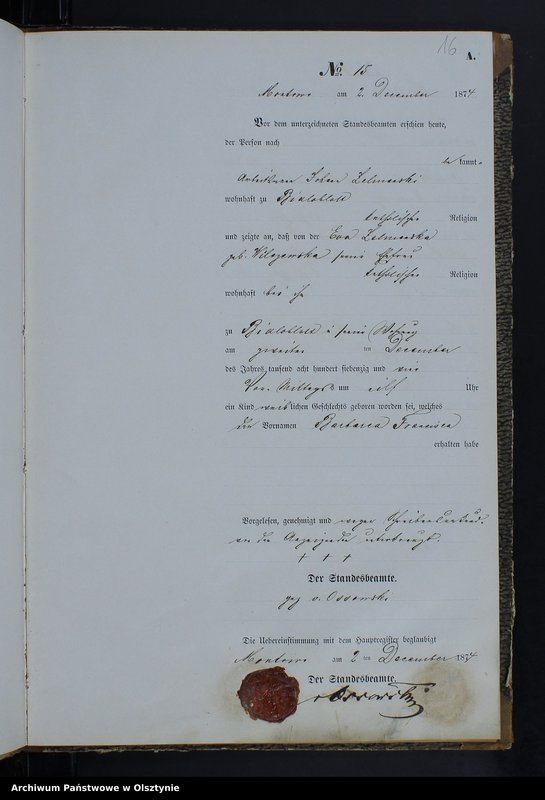 16
A.
No. 15
Montowo am 2. December 1874
Vor dem unterzeichneten Standesbeamten erschien heute,
der Person nach
be kannt
Johan
wohnhaft zu Bialoblott
katholischer Religion
und zeigte an, daß von der Eva
geb. seiner Ehefrau
katholischer Religion
wohnhaft bei ihm
zu Bialoblott in seiner Wohnung
am zweiten ten December
des Jahres tausend acht hundert siebenzig und vier
Vor Mittags um elf Uhr
ein Kind weiblichen Geschlechts geboren worden sei, welches
die Vornamen Barbara Francisca
erhalten habe
Vorgelesen, genehmigt und wegen
von dem Anzeigenden unterkreuzt.
+ + +
Der Standesbeamte.
gez v. Ossowski
Die Uebereinstimmung mit dem Hauptregister beglaubigt
Montowo am 2 ten December 1874
Der Standesbeamte.
v Ossowski
Archiwum Państwowe w Olsztynie